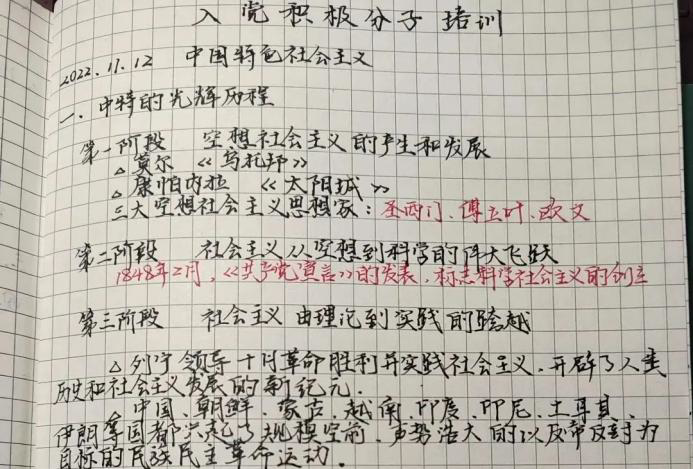 入党积极分子培训
2022.11.12 中国特色社会主义
一.中特的光辉历程
第一阶段 空想社会主义的产生和发展
△莫尔 《乌托邦》
△康帕内拉 《太阳城》
三大空想社会主义思想家：圣西门、傅立叶、欧文
第二阶段 社会主义从空想到科学的伟大飞跃
1848年2月，《共产党宣言》的发表，标志科学社会主义的创立
第三阶段 社会主义由理论到实践的跨越
△列宁领导十月革命胜利并实践社会主义，开辟了人类
历史和社会主义发展的新纪元.
中国、朝鲜、蒙古、越南、印度、印尼、土耳其、
伊朗等国都兴起了规模空前、声势浩大的以反帝反封为
目标的民族民主革命运动.